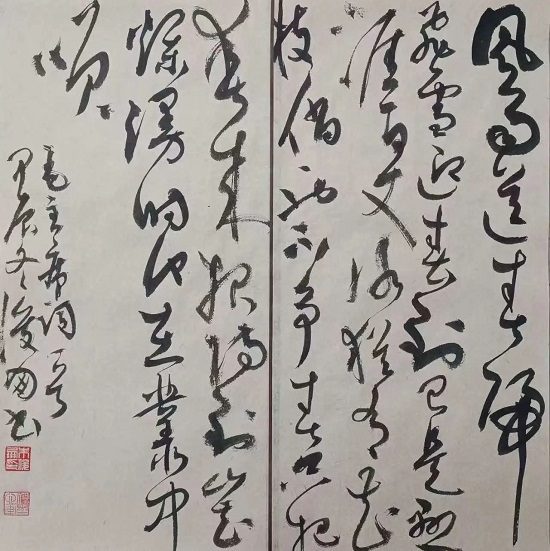 風雨送春歸
飛雪迎春到已是懸
崖百丈冰猶有花
枝俏也不争春只把
春来报待到山花
爛漫时她在叢中
咲
毛主席词一首
甲辰冬书